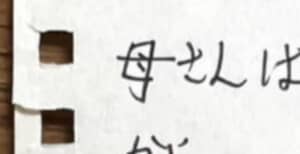 母さんは
が